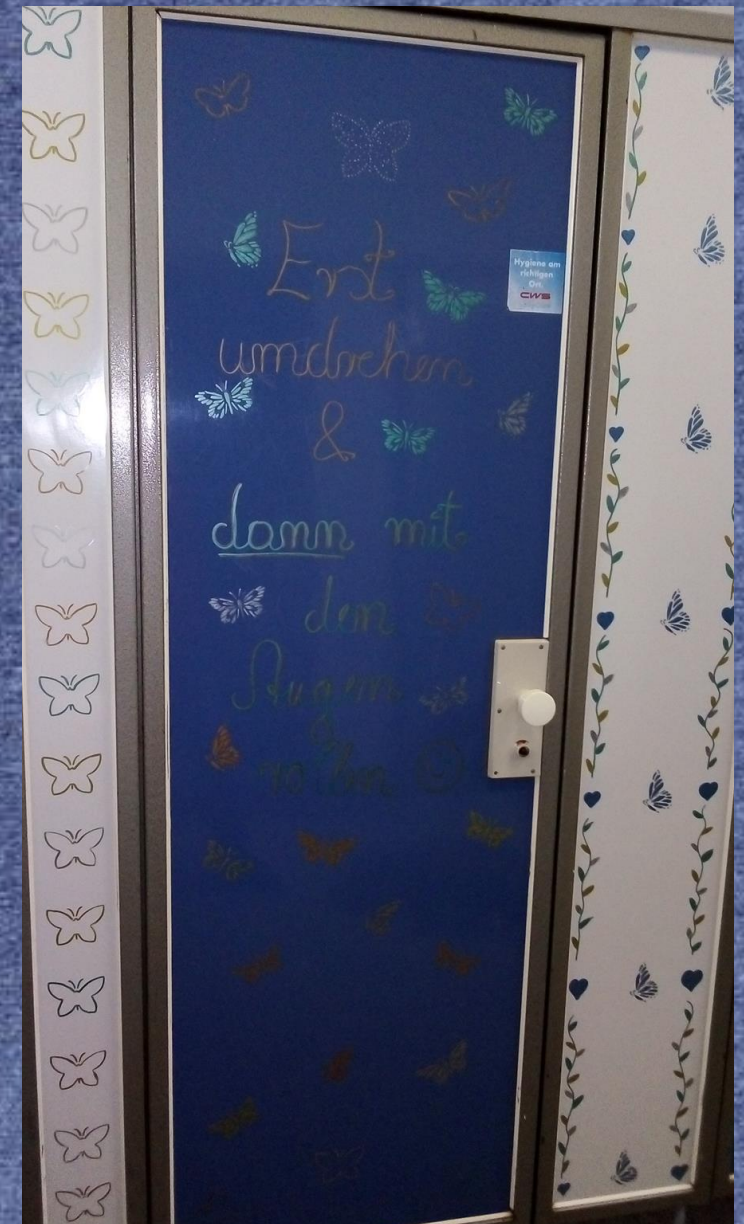 Erst
umdrehen
&
dann mit
den
Augen
rollen
Hygiene am
richtigen
Ort.
CWS